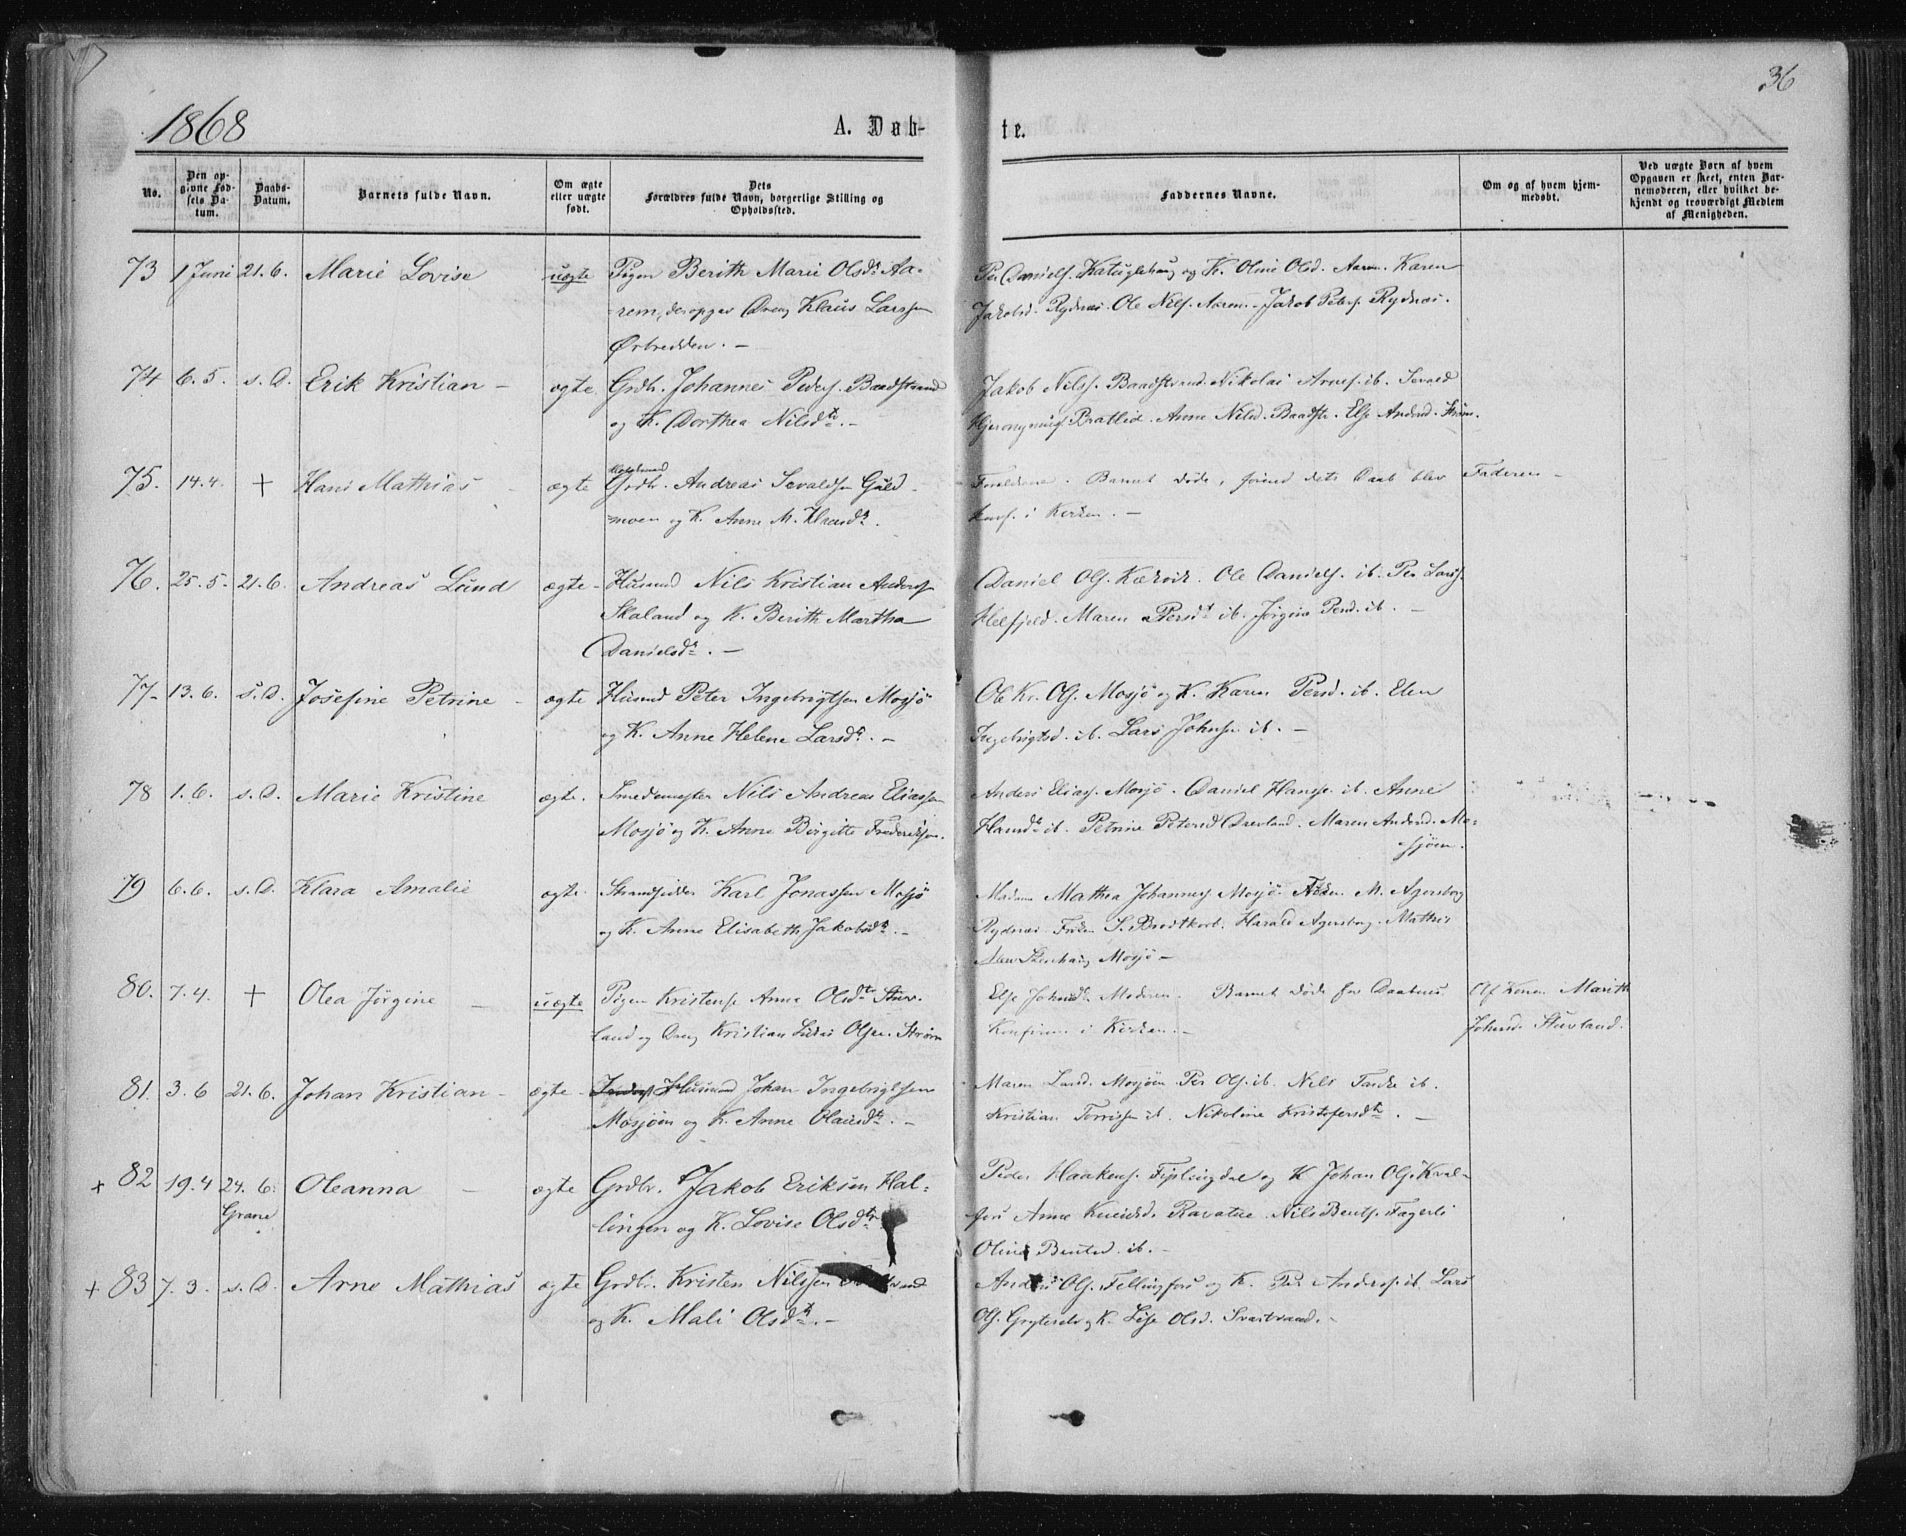 36
1868
A. Døb-
te.
No.
Den op-
givne Fød-
sels Da-
tum.
Daabs-
Datum.
Barnets fulde Navn.
Om ægte
eller uægte
født.
Dets
Forældres fulde Navn, borgerlige Stilling og
Opholdssted.
Faddernes Navne.
Om og af hvem hjem-
medøbt.
Ved uægte Børn af hvem
Opgaven er skeet, enten Bar-
nemoderen, eller hvilket be-
kjendt og troværdigt Medlem
af Menigheden.
73 1 Juni 21.6. Marie Lovise uægte Pigen Berith Marie Olsdr. Aa-
rem, Dreng Klaus Larssen
Per Daniels. og K. Oline Olsd. Aarem. Karen
Jakobsd. Rydnæs. Ole Nils. Aarem. Jakob Peters. Rydnæs.
74 6.5. s.D. Erik Kristian - ægte Grdbr. Johannes Peders. Baadstrand
og K. Dorthea Nilsdt. -
Jakob Nilss. Baadstrand. Nikolai Arnes. ib. Sevald
Hjeronymus. Bratlid. Anne Nilsd. Baadstr. Else Andersd.
75. 14.4. + Hans Mathias - ægte Grdbr. Andreas Sevaldsen Guld-
moen og K. Anne M. Klausdr.
Forældrene. Barnet døde, førend dets Daab blev
konf. i Kirken. -
Faderen -
76. 25.5. 21.6. Andreas Lund ægte - Husmd Nils Kristian Anders.
Skaland og K. Berith Martha
Danielsdr. -
Daniel Ols. Ole Daniels. ib. Per Lars.
Helfjeld. Maren Persdt ib. Jørgine Persd. ib. -
77 - 13.6. s.D. Josefine Petrine - ægte Husmd Peter Ingebrigtsen Mosjø
og K. Anne Helene Larsdr. -
Ole Kr. Ols. Mosjø og K. Karen Persd. ib. Elen
Ingebrigtsd. ib. Lars Johnsen ib. -
78 1.6. s.D. Marie Kristine ægte. Smedemester Nils Andreas Eliassen
Mosjø og K. Anne Birgitte Frederiksen.
Anders Elias. Mosjø. Daniel Hans. ib. Anne
Hansdt ib. Petrine Petersd Drevland. Maren Andersd. Mo-
sjøen.
79 6.6. s.D. Klara Amalie ægte Strandsidder Karl Jonassen Mosjø
og K. Anne Elisabeth Jakobsdr. -
Madame Mathea Johannes. Mosjø. M. Agersborg
Rydnæs Frøken S. Brodtkorb. Harald Agersborg. Mathis
Mosjø -
80. 7.4. + Olea Jørgine - uægte Pigen Kristense Anna Olsdtr Stuv-
land og Dreng Kristian Lukas Olsen. Strøm
Else Johnsdt. Moderen. Barnet døde før Daabens
Konfirm. i Kirken. -
Af Konen Marith
Johnsd. Stuvland.
81. 3.6 21.6. Johan Kristian - ægte - Husmand Johan Ingebrigtsen
Mosjøen og K. Anne Olausdr. -
Maren Larsd. Mosjøen Per Ols. ib. Nils ib.
Kristian Torrissen ib. Nikoline Kristofersdtr. -
+ 82 19.4 24.6. Oleanna - ægte Grdbr. Jakob Eriksen Hal-
Grane
lingen og K. Lovise Olsdtr
Peder Haakens. Fiplingdal og K Johan Ols. Kval-
fors Anne Nils Bents. Fagerli
Oline Bentsd. ib. -
+ 83 7.3. s.D. Arne Mathias ægte Grdbr. Kristen Nilssen
og K. Mali Olsdr. -
Anders Ols. Fellingfors og K. Per Anders. ib. Lars
Ols. Gryteselv og K. Lise Olsd. Svartvand. -